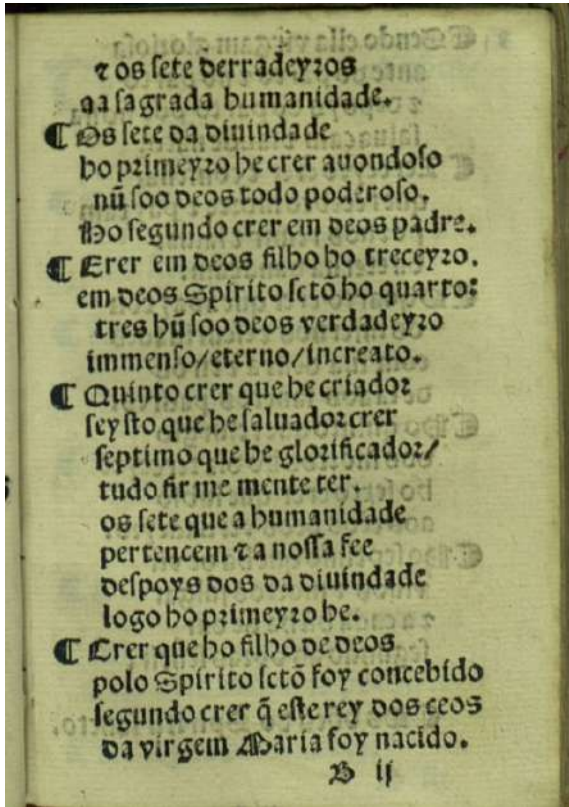 ⁊ os sete derradeyros
aa sagrada humanidade.
¶ Os sete da diuindade
ho primeyro he crer auondoso
nũ soo deos todo poderoso.
Ho segundo crer em deos padre.
¶ Crer em deos filho ho treceyro.
em deos Spirito sctõ ho quarto:
tres hũ soo deos verdadeyro
immenso/eterno/increato.
¶ Quinto crer que he criador
seysto que he saluador crer
septimo que he glorificador/
tudo firme mente ter.
os sete que a humanidade
pertencem ⁊ a nossa fee
despoys dos da diuindade
logo ho primeyro he.
¶ Crer que ho filho de deos
polo Spirito sctõ foy concebido
segundo crer q̃ este rey dos ceos
da virgem Maria foy nacido.
B ij